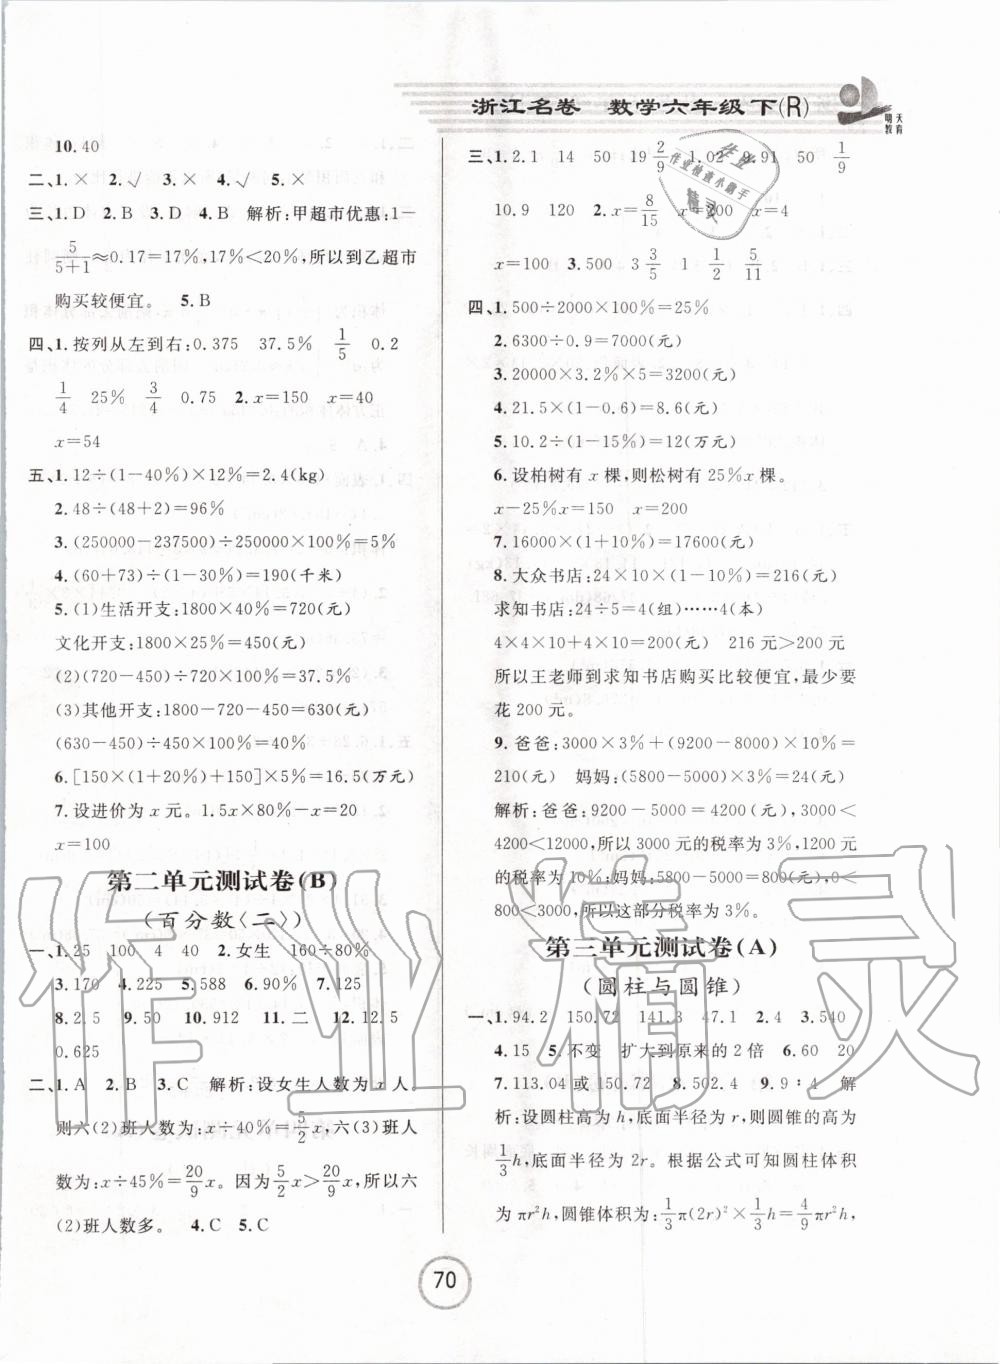 浙江名卷　数学六年级下(R)
明天教育
10.40
二、1.× 2.√ 3.× 4.√ 5.×
三、1.D 2.B 3.D 4.B 解析:甲超市优惠:1－
5/(5+1)≈0.17=17%,17%<20%,所以到乙超市
购买较便宜。 5.B
四、1.按列从左到右:0.375 37.5% 1/5 0.2
1/4 25% 3/4 0.75 2.x=150 x=40
x=54
五、1.12÷(1-40%)×12%=2.4(kg)
2.48÷(48+2)=96%
3.(250000-237500)÷250000×100%=5%
4.(60+73)÷(1-30%)=190(千米)
5.(1)生活开支:1800×40%=720(元)
文化开支:1800×25%=450(元)
(2)(720-450)÷720×100%=37.5%
(3)其他开支:1800-720-450=630(元)
(630-450)÷450×100%=40%
6.[150×(1+20%)+150]×5%=16.5(万元)
7.设进价为x元。1.5x×80%-x=20
x=100
第二单元测试卷(B)
(百分数〈二〉)
一、1.25 100 4 40 2.女生 160÷80%
3.170 4.225 5.58 6.90% 7.125
8.2.5 9.50 10.912 11.二 12.12.5
0.625
二、1.A 2.B 3.C 解析:设女生人数为x人。
则六(2)班人数为:x÷40%=5/2x,六(3)班人
数为:x÷45%=20/9x。因为5/2x>20/9x,所以六
(2)班人数多。 4.C 5.C
三、1.2.1 14 50 19 2/9 1.02 9.91 50 1/9
10.9 120 2.x=8/15 x=200 x=4
x=100 3.500 3 3/5 1 1/2 5/11
四、1.500÷2000×100%=25%
2.6300÷0.9=7000(元)
3.20000×3.2%×5=3200(元)
4.21.5×(1-0.6)=8.6(元)
5.10.2÷(1-15%)=12(万元)
6.设柏树有x棵,则松树有25%x棵。
x-25%x=150 x=200
7.16000×(1+10%)=17600(元)
8.大众书店:24×10×(1-10%)=216(元)
求知书店:24÷5=4(组)……4(本)
4×4×10+4×10=200(元) 216元>200元
所以王老师到求知书店购买比较便宜,最少要
花200元。
9.爸爸:3000×3%+(9200-8000)×10%=
210(元) 妈妈:(5800-5000)×3%=24(元)
解析:爸爸:9200-5000=4200(元),3000<
4200<12000,所以3000元的税率为3%,1200元
的税率为10%;妈妈:5800-5000=800(元),0<
800<3000,所以这部分税率为3%。
第三单元测试卷(A)
(圆柱与圆锥)
一、1.94.2 150.72 141.3 47.1 2.4 3.540
4.15 5.不变 扩大到原来的2倍 6.60 20
7.113.04或150.72 8.502.4 9.9:4 解
析:设圆柱高为h,底面半径为r,则圆锥的高为
1/3h,底面半径为2r。根据公式可知圆柱体积
为πr²h,圆锥体积为:1/3π(2r)²×1/3h=4/9πr²h,
70
作业精灵
作业
作业检查小助手
精灵